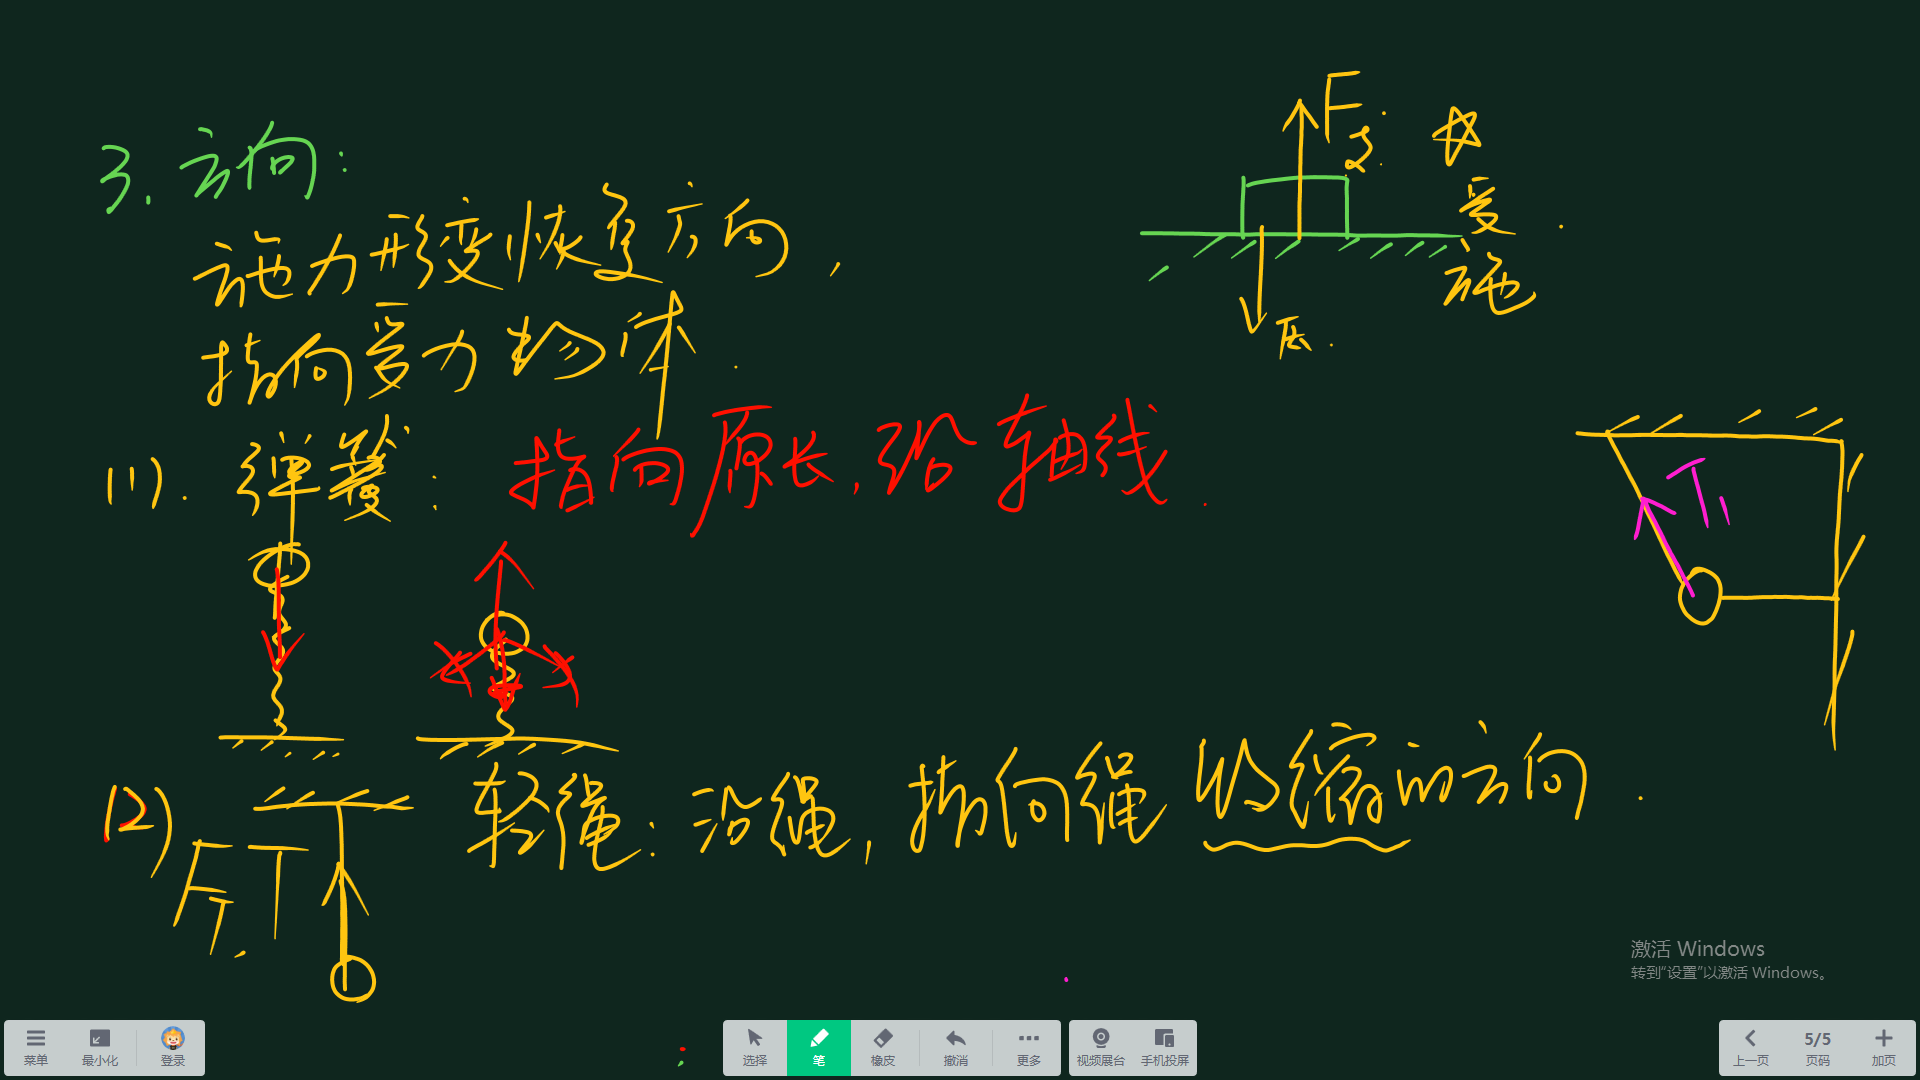 3. 方向:
施力形变恢复方向,
指向受力物体.
F支.
受.
施
压.
(1). 弹簧: 指向原长, 沿轴线.
T₁
(2) 轻绳: 沿绳, 指向绳收缩的方向.
F_T. T
激活 Windows
转到“设置”以激活 Windows。
菜单 最小化 登录 选择 笔 橡皮 撤消 更多 视频展台 手机投屏 上一页 5/5 页码 加页